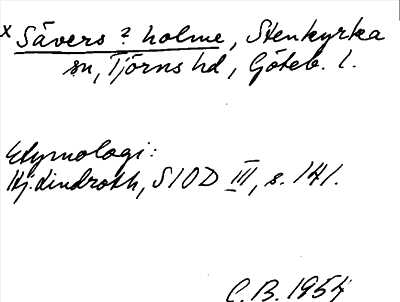 x Sävers? holme, Stenkyrka
sn, Tjörns hd, Göteb. l.
Etymologi:
Hj. Lindroth, SIOD III, s. 141.
C.B. 1954